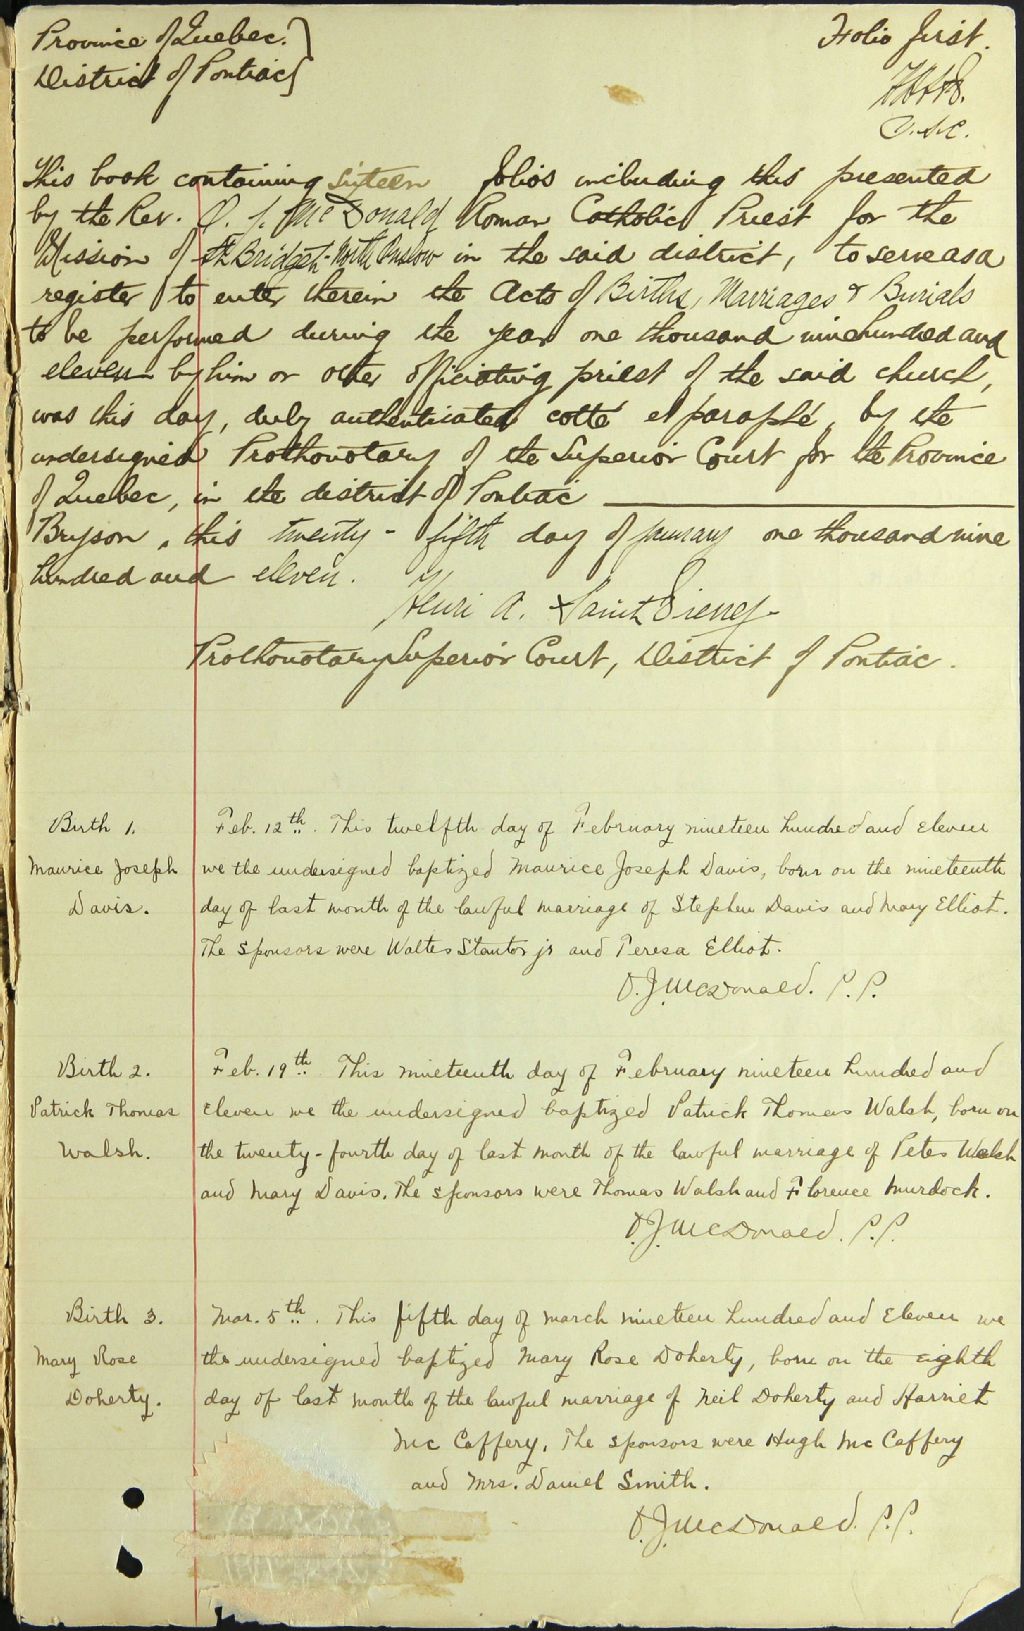 Province of Quebec.
District of Pontiac
Folio first.
P.S.C.
This book containing sixteen folios including this presented
by the Rev. D. J. McDonald Roman Catholic Priest for the
Mission of St Bridget - North Onslow in the said district, to serve as a
register to enter therein the Acts of Births, Marriages & Burials
to be performed during the year one thousand nine hundred and
eleven by him or other officiating priest of the said church,
was this day, duly authenticated cotté et paraphé, by the
undersigned Prothonotary of the Superior Court for the Province
of Quebec, in the district of Pontiac
Bryson, this twenty - fifth day of January one thousand nine
hundred and eleven.
Henri A. Saint
Prothonotary Superior Court, District of Pontiac.
Birth 1.
Maurice Joseph
Davis.
Feb. 12th. This twelfth day of February nineteen hundred and eleven
we the undersigned baptized Maurice Joseph Davis, born on the nineteenth
day of last month of the lawful marriage of Stephen Davis and Mary Elliot.
The sponsors were Walter Stanton jr and Teresa Elliot.
D.J. McDonald. P.P.
Birth 2.
Patrick Thomas
Walsh.
Feb. 19th. This nineteenth day of February nineteen hundred and
eleven we the undersigned baptized Patrick Thomas Walsh, born on
the twenty-fourth day of last month of the lawful marriage of Peter Walsh
and Mary Davis. The sponsors were Thomas Walsh and Florence Murdock.
D.J. McDonald. P.P.
Birth 3.
Mary Rose
Doherty.
Mar. 5th. This fifth day of March nineteen hundred and eleven we
the undersigned baptized Mary Rose Doherty, born on the eighth
day of last month of the lawful marriage of Neil Doherty and Harriet
Mc Caffery. The sponsors were Hugh Mc Caffery
and Mrs. Daniel Smith.
D.J. McDonald. P.P.